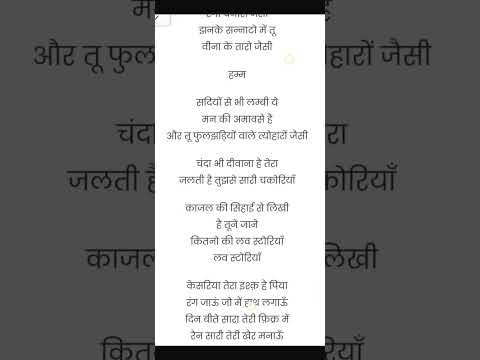 झनके सन्नाटो में तू
वीना के तारो जैसी
हम्म
सदियों से भी लम्बी ये
मन की अमावसे हैं
और तू फुलझड़ियों वाले त्योहारों जैसी
चंदा भी दीवाना हे तेरा
जलती है तुझसे सारी चकोरियाँ
काजल की सिहाई से लिखी
हे तूने जाने
कितनो की लव स्टोरियाँ
लव स्टोरियाँ
केसरिया तेरा इश्क़ हे पिया
रंग जाऊं जो में हाथ लगाऊँ
दिन बीते सारा तेरी फ़िक्र में
रैन सारी तेरी खेर मनाऊँ